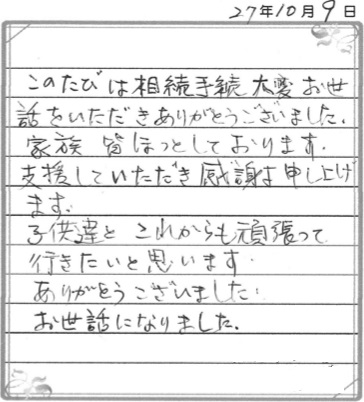 27年10月9日
このたびは相続手続大変お世
話をいただきありがとうございました.
家族 皆ほっとしております.
支援していただき感謝申し上げ
ます.
子供達と これからも頑張って
行きたいと思います.
ありがとうございました.
お世話になりました.